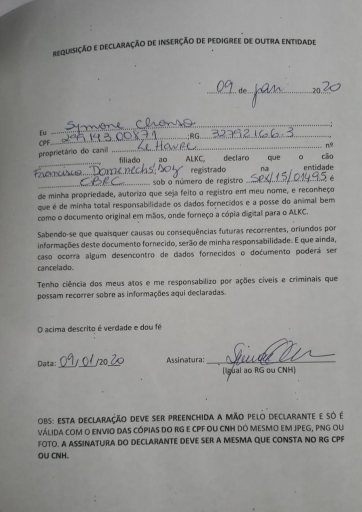 REQUISIÇÃO E DECLARAÇÃO DE INSERÇÃO DE PEDIGREE DE OUTRA ENTIDADE
09 de jan 2020
Eu Symone Chonso ;
CPF 29914300871 ;RG 32792166-3 ;
proprietário do canil Le Havre nº
filiado ao ALKC, declaro que o cão
Francisco Domenech's boy registrado na entidade
CBRC sob o número de registro SPX/15/01495 e
de minha propriedade, autorizo que seja feito o registro em meu nome, e reconheço
que é de minha total responsabilidade os dados fornecidos e a posse do animal bem
como o documento original em mãos, onde forneço a cópia digital para o ALKC.
Sabendo-se que quaisquer causas ou consequências futuras recorrentes, oriundos por
informações deste documento fornecido, serão de minha responsabilidade. E que ainda,
caso ocorra algum desencontro de dados fornecidos o documento poderá ser
cancelado.
Tenho ciência dos meus atos e me responsabilizo por ações cíveis e criminais que
possam recorrer sobre as informações aqui declaradas.
O acima descrito é verdade e dou fé
Data: 09/01/2020 Assinatura:
(Igual ao RG ou CNH)
OBS: ESTA DECLARAÇÃO DEVE SER PREENCHIDA A MÃO PELO DECLARANTE E SÓ É
VÁLIDA COM O ENVIO DAS CÓPIAS DO RG E CPF OU CNH DO MESMO EM JPEG, PNG OU
FOTO. A ASSINATURA DO DECLARANTE DEVE SER A MESMA QUE CONSTA NO RG CPF
OU CNH.